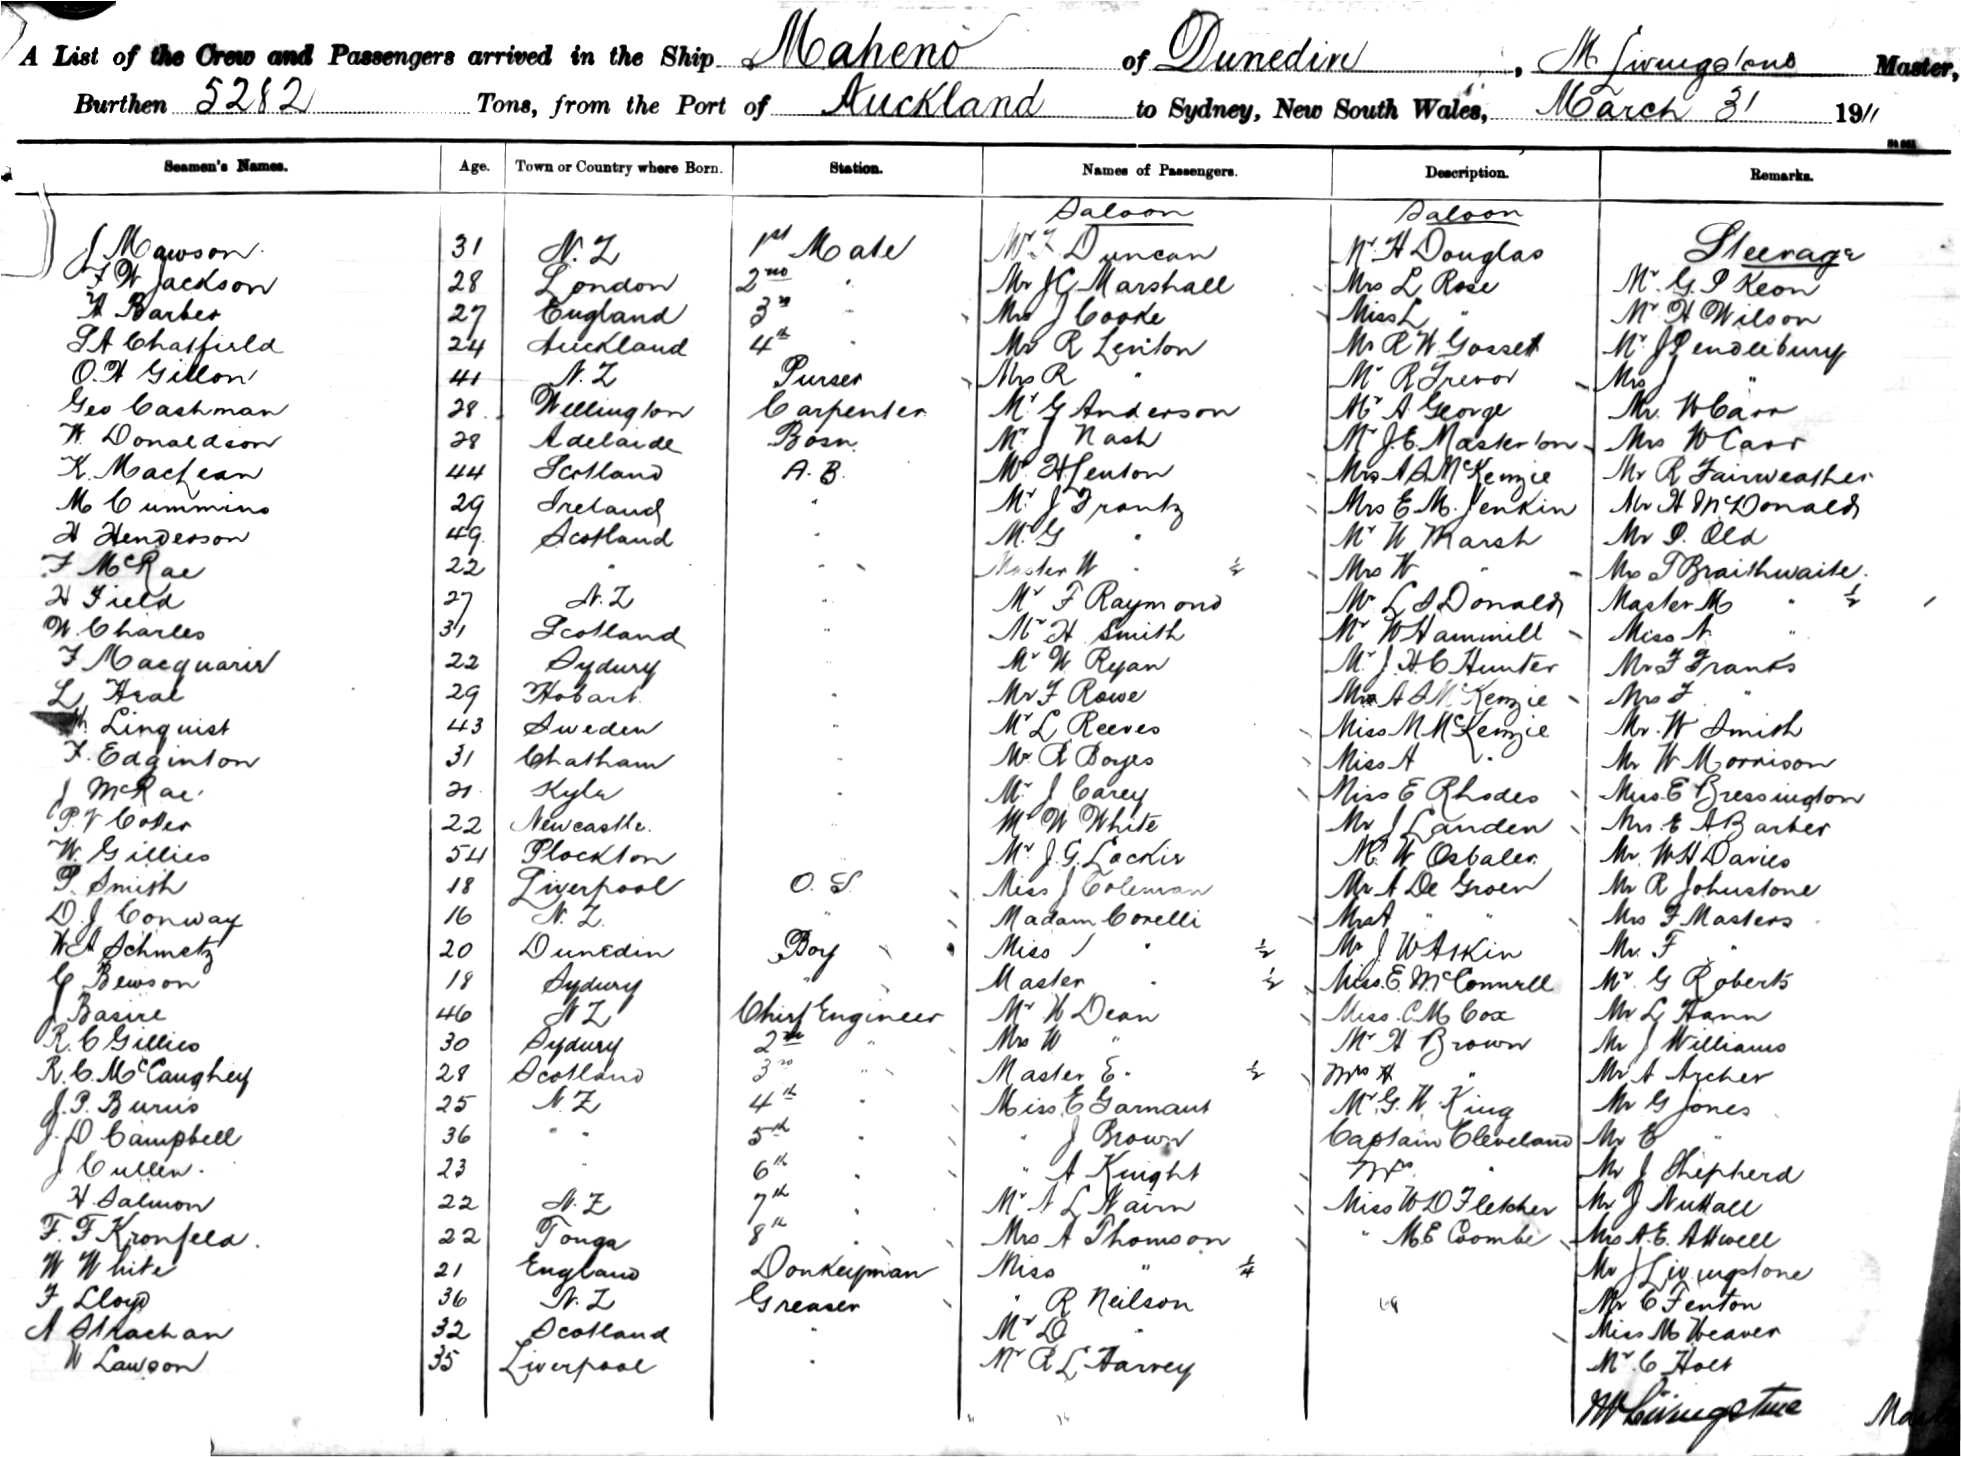 A List of the Crew and Passengers arrived in the Ship Maheno of Dunedin, M Livingstone Master,
Burthen 5282 Tons, from the Port of Auckland to Sydney, New South Wales, March 31 1911
Seamen's Names. Age. Town or Country where Born. Station. Names of Passengers. Description. Remarks.
Saloon Saloon
J Mawson 31 N.Z 1st Mate Mr Duncan Mr H Douglas Steerage
F W Jackson 28 London 2nd " Mr J C Marshall Mrs L Rose Mr G. P Keon
H Barber 27 England 3rd " Mrs J Cooke Miss L " Mr H Wilson
S A Chatfield 24 Auckland 4th " Mr R Lenton Mr R W Gosset Mr J Pendlebury
O. H Gillon 41 N.Z Purser Mrs R " Mr R Trevor Mrs J "
Geo Cashman 28 Wellington Carpenter Mr G Anderson Mr A George Mr. W Carr
W. Donaldson 28 Adelaide Bosn Mr J Nash Mr J. E. Masterton Mrs W Carr
K. MacLean 44 Scotland A. B. Mr H Lenton Mrs A S McKenzie Mr R Fairweather
M Cummins 29 Ireland " Mr J Frantz Mrs E M. Jenkin Mr H McDonald
H Henderson 49 Scotland " Mr. G " Mr W Marsh Mr P. Old
F McRae 22 " " Master W " ½ Mrs W " Mrs T Braithwaite
H Field 27 N.Z " Mr F Raymond Mr L S Donald Master M " ½
W. Charles 31 Scotland " Mr H Smith Mr W Hammill Miss N "
F Macquarie 22 Sydney " Mr W Ryan Mr J. H. C Hunter Mr F Franks
L Heal 29 Hobart " Mr F Rowe Mrs A S McKenzie Mrs F "
Linquist 43 Sweden " Mr L Reeves Miss M McKenzie Mr. W Smith
F. Edginton 31 Chatham " Mr. R Boyes Miss A " Mr W Morrison
J McRae 21 Kyle " Mr J Carey Miss E Rhodes Miss E Bressington
P. V Coster 22 Newcastle " Mr W White Mr J Landen Mrs. E A Barber
W. Gillies 54 Plockton " Mr J. G. Lockie Mr W Osbaler Mr W H Davies
P. Smith 18 Liverpool O. S. Miss J Coleman Mr A De Groen Mr R Johnstone
D. J Conway 16 N.Z. " Madam Corelli Mrs A " " Mrs F Masters
W. A Schmetz 20 Dunedin Boy Miss " ½ Mr J W Askin Mr. F "
C Bewson 18 Sydney " Master " ½ Miss. E. McConnell Mr G Roberts
J Basire 46 N Z Chief Engineer Mr W Dean Miss. C M Cox Mr L Hann
R. C Gillies 30 Sydney 2nd " Mrs W " Mr H Brown Mr J Williams
R. C. McCaughey 28 Scotland 3rd " Master E. " ½ Mrs H " Mr A Archer
J. P. Burns 25 N.Z 4th " Miss E Garnaut Mr G. W. King Mr G Jones
J. D Campbell 36 " " 5th " " J Brown Captain Cleveland Mr E "
J Cullen 23 " 6th " " A Knight Mrs " Mr J Shepherd
H Salmon 22 N.Z 7th " Mr N L Nairn Miss W D Fletcher Mr J Nuttall
F. F Kronfeld 22 Tonga 8th " Mrs A Thomson " M. E Coombe Mrs A. E. Attwell
W White 21 England Donkeyman Miss " ¼ Mr J Livingstone
F Lloyd 36 N.Z Greaser " R Neilson Mr C Fenton
A Strachan 32 Scotland " Mr D " Miss M Weaver
W Lawson 35 Liverpool " Mr R L Harvey Mr C Holt
M Livingstone